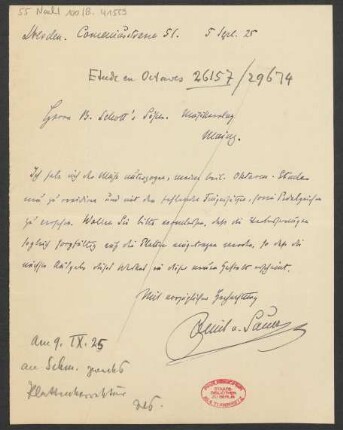 55 Nachl 100/B, 41553
Dresden. Comeniusstrasse 51. 5 Sept. 25
Etude en Octaves 26157/29674
Herrn B. Schott's Söhne. Musikverlag
Mainz.
Ich habe mich der Mühe unterzogen, meine Oktaven-Etude
neu zu revidiren und mit den fehlenden Fingersätzen, sowie Pedalzeichen
zu versehen. Wollen Sie bitte veranlassen, dass die
sogleich sorgfältig auf die Platten eingetragen werden, so dass die
nächste Ausgabe dieses Werkes in dieser neuen Gestalt erscheint.
Mit vorzüglicher Hochachtung
Emil v. Sauer
am 9. IX. 25
an Schm.
Plattenkorrektur